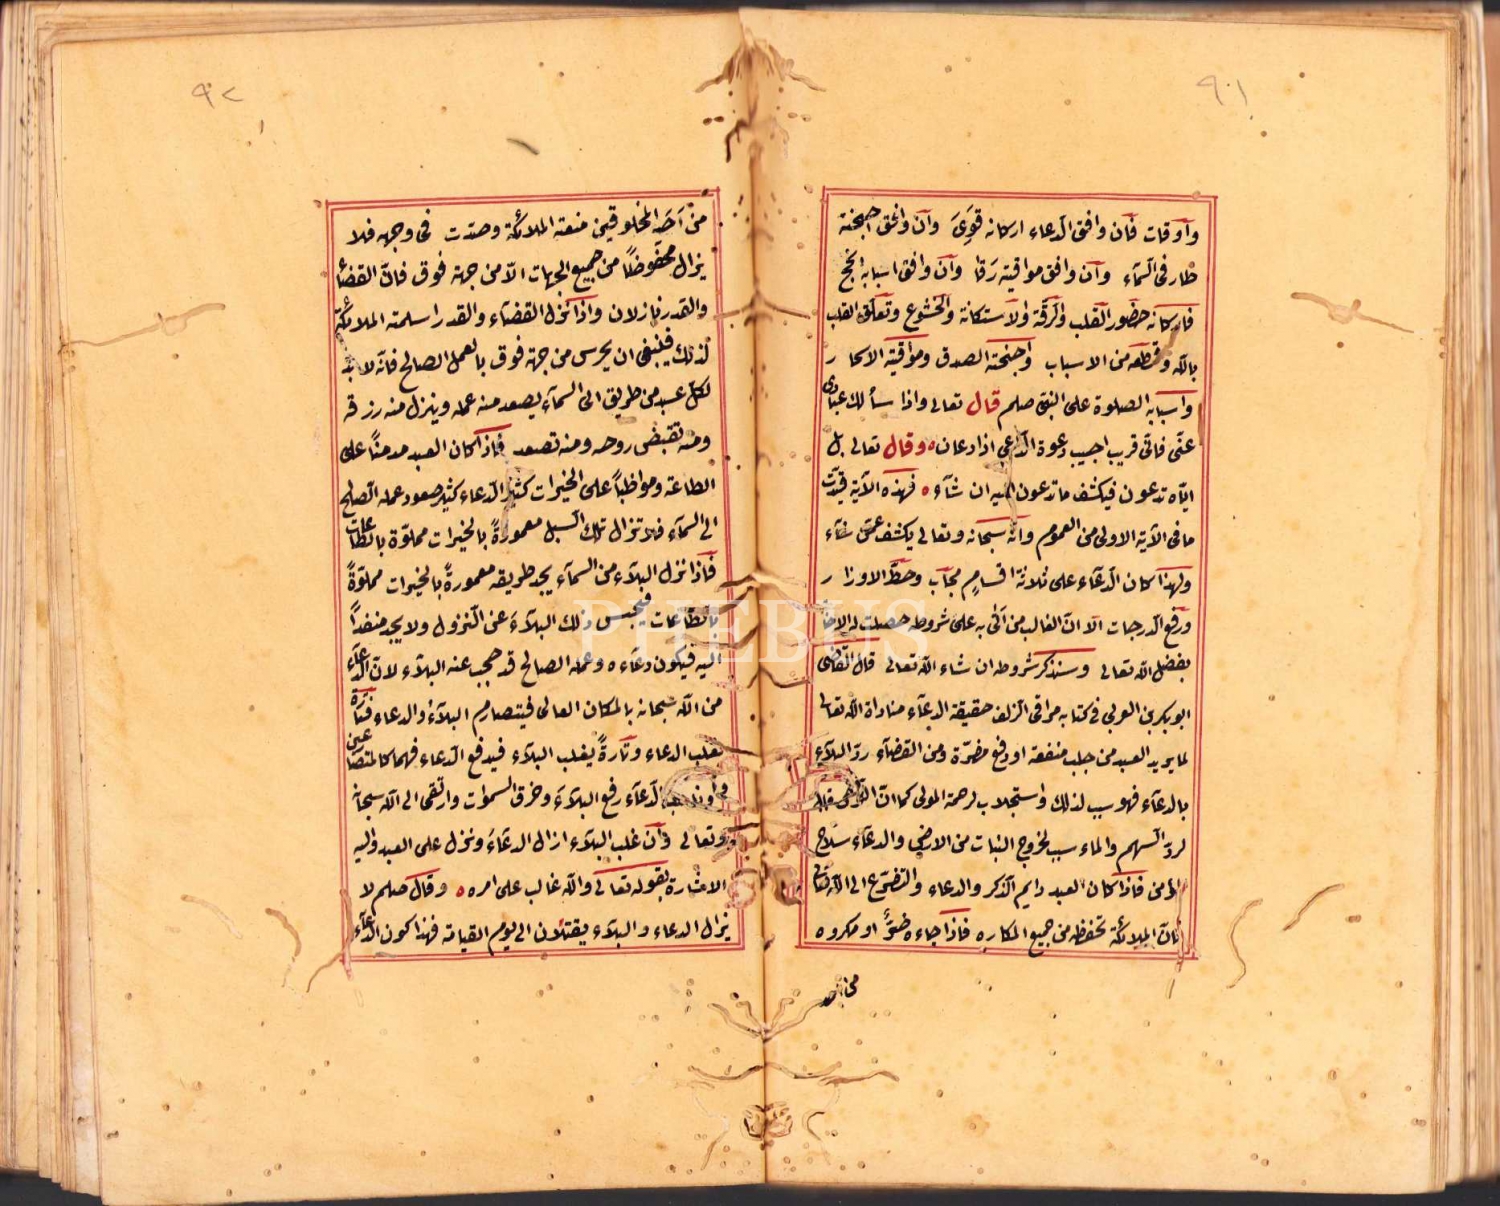 ٩١
وأوقات فأن وافق الدعاء اركانه قَوِىَ وأن وافق اجنحته
طار فى السمآء وأن وافق مواقيته رَقا وأن وافق اسبابه انجح
فاركانه حضور القلب والرقّة والاستكانة والخشوع وتعلّق القلب
بالله وقطعه من الاسباب وأجنحته الصدق ومواقيته الاسحار
وأسبابه الصلوة على النبىّ صلعم قال تعالى واذا سألك عبادى
عنّى فانّى قريب اجيب دعوة الدّاعى اذا دعان ه وقال تعالى بل
ايّاه تدعون فيكشف ما تدعون اليه ان شآء ه فهذه الآية قيّدت
ما فى الآية الاولى من العموم وانّه سبحانه وتعالى يكشف عمّن شآء
ولهذا كان الدّعآء على ثلاثة اقسامٍ مجآب وحطّ الاوزار
ورفع الدّرجات الا انّ الغالب من أتى به على شروطه حصلت له الاجا
بفضل الله تعالى وسنذكر شروطه ان شاء الله تعالى قال القاضى
ابو بكر بن العربى فى كتابه مراقى الزلف حقيقة الدعآء مناداة الله تعالى
لما يريد العبد من جلب منفعة او دفع مضرّة ومن القضآء ردّ البلآء
بالدعآء فهو سبب لذلك واستجلاب لرحمة المولى كما انّ
لردّ السهم والماء سبب لخروج النبات من الارض والدعآء سلاح
المؤمن فاذا كان العبد دايم الذكر والدعاء والتضرّع الى الله تعالى
فانّ الملائكة تحفظه من جميع المكاره فاذا جاءه ضرّ او مكروه
من احد
٩٢
من أحد المخلوقين منعته الملائكة وصدّت فى وجهه فلا
يزال محفوظاً من جميع الجهات الّا من جهة فوق فانّ القضاء
والقدر نازلان واذا نزل القضآء والقدر اسلمته الملائكة
لذلك فينبغى ان يحرس من جهة فوق بالعمل الصالح فانّه لا بدّ
لكلّ عبد من طريق الى السمآء يصعد منه عمله وينزل منه رزقه
ومنه تقبض روحه ومنه تصعد فاذا كان العبد مدمناً على
الطاعة ومواظباً على الخيرات كثير الدعاء كثير صعود عمله الصلح
الى السمآء فلا تزال تلك السبل معمورةً بالخيرات مملوّة بالطاعات
فأذا نزل البلآء من السمآء يجد طريقه معمورةً بالخيرات مملوّةً
بالطاعات فيحبس ذلك البلآءَ عن النزول ولا يجد منفذاً
اليه فيكون دعآءه وعمله الصالح قد حجب عنه البلآء لانّ الدعآء
من الله سبحانه بالمكان العالى فيتصارم البلآء والدعاء فتارةً
يغلب الدعاء وتارةً يغلب البلآء فيدفع الدعاء فهما كالمتصارعين
الدّعآء رفع البلآءَ وخرق السموات وارتقى الى الله سبحانه
وتعالى وأن غلب البلآء ازال الدعآءَ ونزل على العبد واليه
الاشارة بقوله تعالى والله غالب على امره ه وقال صلعم لا
يزال الدعاء والبلآء يقتتلان الى يوم القيامة فهذا كون الدعآء
PHEBUS